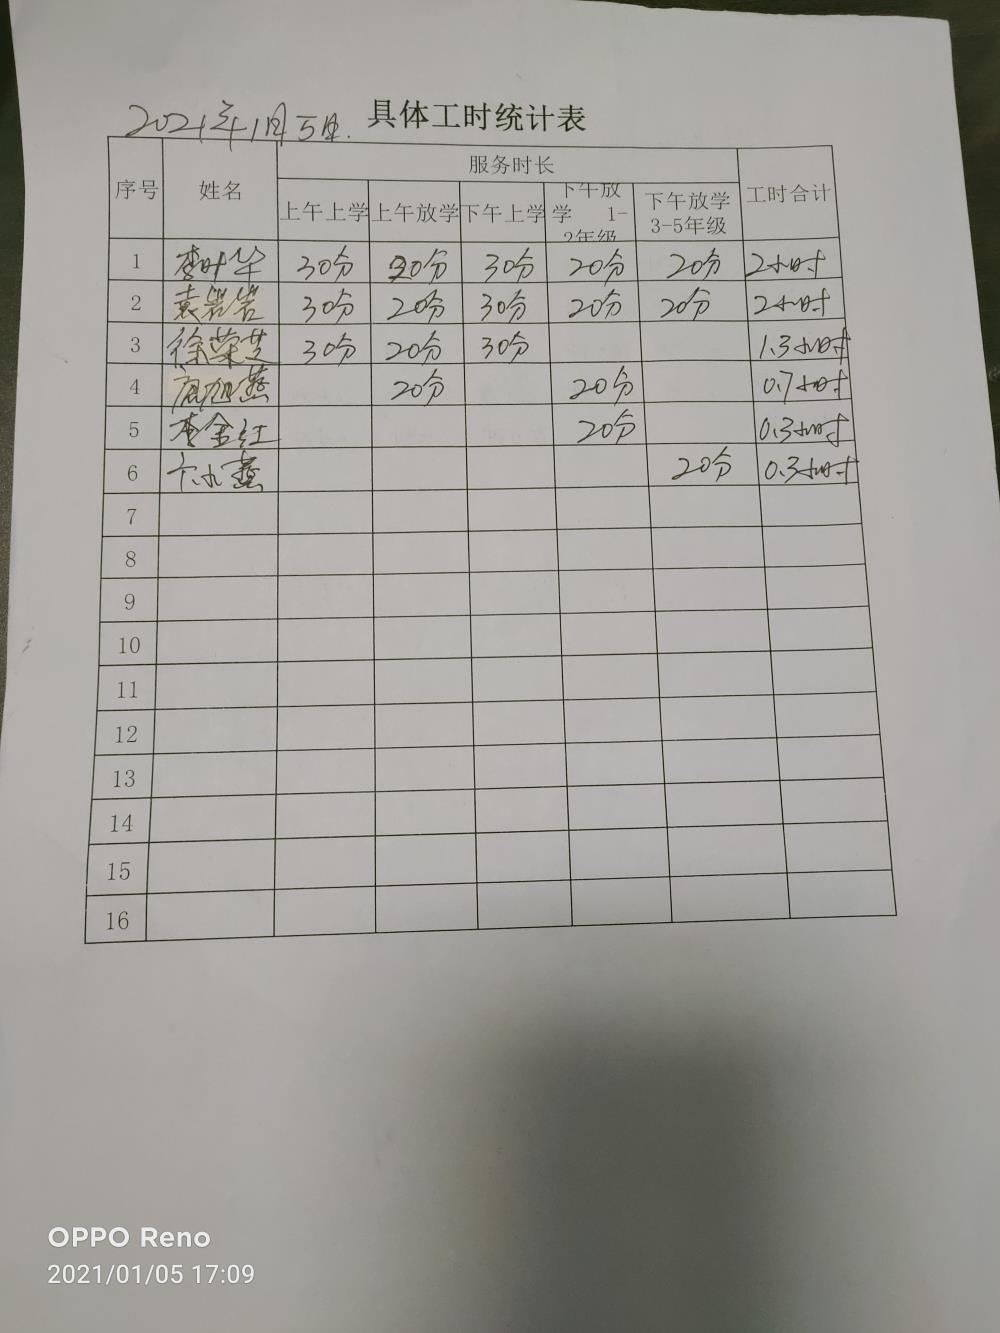 2021年1月5日. 具体工时统计表
序号 姓名 服务时长 工时合计
上午上学 上午放学 下午上学 下午放学 1-2年级 下午放学 3-5年级
1 李叶华 30分 20分 30分 20分 20分 2小时
2 袁岩岩 30分 20分 30分 20分 20分 2小时
3 徐荣芝 30分 20分 30分 1.3小时
4 旭燕 20分 20分 0.7小时
5 李金红 20分 0.3小时
6 卞小燕 20分 0.3小时
7
8
9
10
11
12
13
14
15
16
OPPO Reno
2021/01/05 17:09